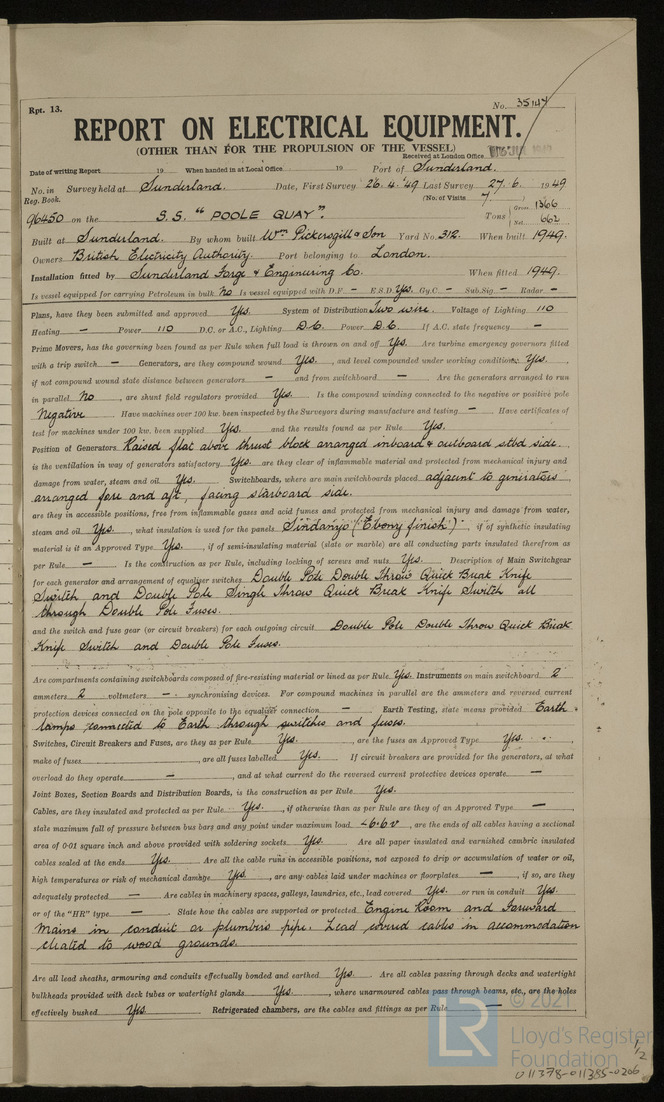 Rpt. 13.
No. 35147
REPORT ON ELECTRICAL EQUIPMENT.
(OTHER THAN FOR THE PROPULSION OF THE VESSEL)
Received at London Office
Date of writing Report 19 When handed in at Local Office 19 Port of Sunderland.
No. in Survey held at Sunderland. Date, First Survey 26.4.49 Last Survey 27.6. 1949
Reg. Book. (No. of Visits 7.)
96450 on the S.S. "POOLE QUAY". Tons Gross 1366 Net 662
Built at Sunderland. By whom built Wm Pickersgill & Son Yard No. 312. When built 1949.
Owners British Electricity Authority. Port belonging to London.
Installation fitted by Sunderland Forge & Engineering Co. When fitted 1949.
Is vessel equipped for carrying Petroleum in bulk No Is vessel equipped with D.F. – E.S.D. Yes. Gy.C. – Sub.Sig. – Radar –
Plans, have they been submitted and approved Yes. System of Distribution Two wire. Voltage of Lighting 110
Heating – Power 110 D.C. or A.C., Lighting D.C. Power D.C. If A.C. state frequency –
Prime Movers, has the governing been found as per Rule when full load is thrown on and off Yes. Are turbine emergency governors fitted
with a trip switch – Generators, are they compound wound Yes., and level compounded under working conditions Yes.,
if not compound wound state distance between generators – and from switchboard –. Are the generators arranged to run
in parallel No, are shunt field regulators provided Yes. Is the compound winding connected to the negative or positive pole
Negative. Have machines over 100 kw. been inspected by the Surveyors during manufacture and testing –. Have certificates of
test for machines under 100 kw. been supplied Yes. and the results found as per Rule Yes.
Position of Generators Raised flat above thrust block arranged inboard & outboard stbd side.
is the ventilation in way of generators satisfactory Yes. are they clear of inflammable material and protected from mechanical injury and
damage from water, steam and oil Yes. Switchboards, where are main switchboards placed adjacent to generators,
arranged fore and aft, facing starboard side.
are they in accessible positions, free from inflammable gases and acid fumes and protected from mechanical injury and damage from water,
steam and oil Yes., what insulation is used for the panels Sindanyo (Ebony finish)., if of synthetic insulating
material is it an Approved Type Yes., if of semi-insulating material (slate or marble) are all conducting parts insulated therefrom as
per Rule – Is the construction as per Rule, including locking of screws and nuts Yes. Description of Main Switchgear
for each generator and arrangement of equaliser switches Double Pole Double Throw Quick Break Knife
Switch and Double Pole Single Throw Quick Break Knife Switch all
through Double Pole Fuses.
and the switch and fuse gear (or circuit breakers) for each outgoing circuit Double Pole Double Throw Quick Break
Knife Switch and Double Pole Fuses.
Are compartments containing switchboards composed of fire-resisting material or lined as per Rule Yes. Instruments on main switchboard 2
ammeters 2 voltmeters – synchronising devices. For compound machines in parallel are the ammeters and reversed current
protection devices connected on the pole opposite to the equaliser connection –. Earth Testing, state means provided Earth
lamps connected to Earth through switches and fuses.
Switches, Circuit Breakers and Fuses, are they as per Rule Yes., are the fuses an Approved Type Yes.,
make of fuses, are all fuses labelled Yes. If circuit breakers are provided for the generators, at what
overload do they operate –, and at what current do the reversed current protective devices operate –
Joint Boxes, Section Boards and Distribution Boards, is the construction as per Rule Yes.
Cables, are they insulated and protected as per Rule Yes., if otherwise than as per Rule are they of an Approved Type –,
state maximum fall of pressure between bus bars and any point under maximum load <6.6v, are the ends of all cables having a sectional
area of 0·01 square inch and above provided with soldering sockets Yes. Are all paper insulated and varnished cambric insulated
cables sealed at the ends Yes. Are all the cable runs in accessible positions, not exposed to drip or accumulation of water or oil,
high temperatures or risk of mechanical damage Yes., are any cables laid under machines or floorplates –, if so, are they
adequately protected –. Are cables in machinery spaces, galleys, laundries, etc., lead covered Yes. or run in conduit Yes.
or of the "HR" type –. State how the cables are supported or protected Engine Room and Forward
Mains in conduit or plumbers pipe. Lead covered cables in accommodation
cleated to wood grounds.
Are all lead sheaths, armouring and conduits effectually bonded and earthed Yes. Are all cables passing through decks and watertight
bulkheads provided with deck tubes or watertight glands Yes., where unarmoured cables pass through beams, etc., are the holes
effectively bushed Yes. Refrigerated chambers, are the cables and fittings as per Rule –
LR © 2021
Lloyd's Register
Foundation
1/2
011378-011385-0206